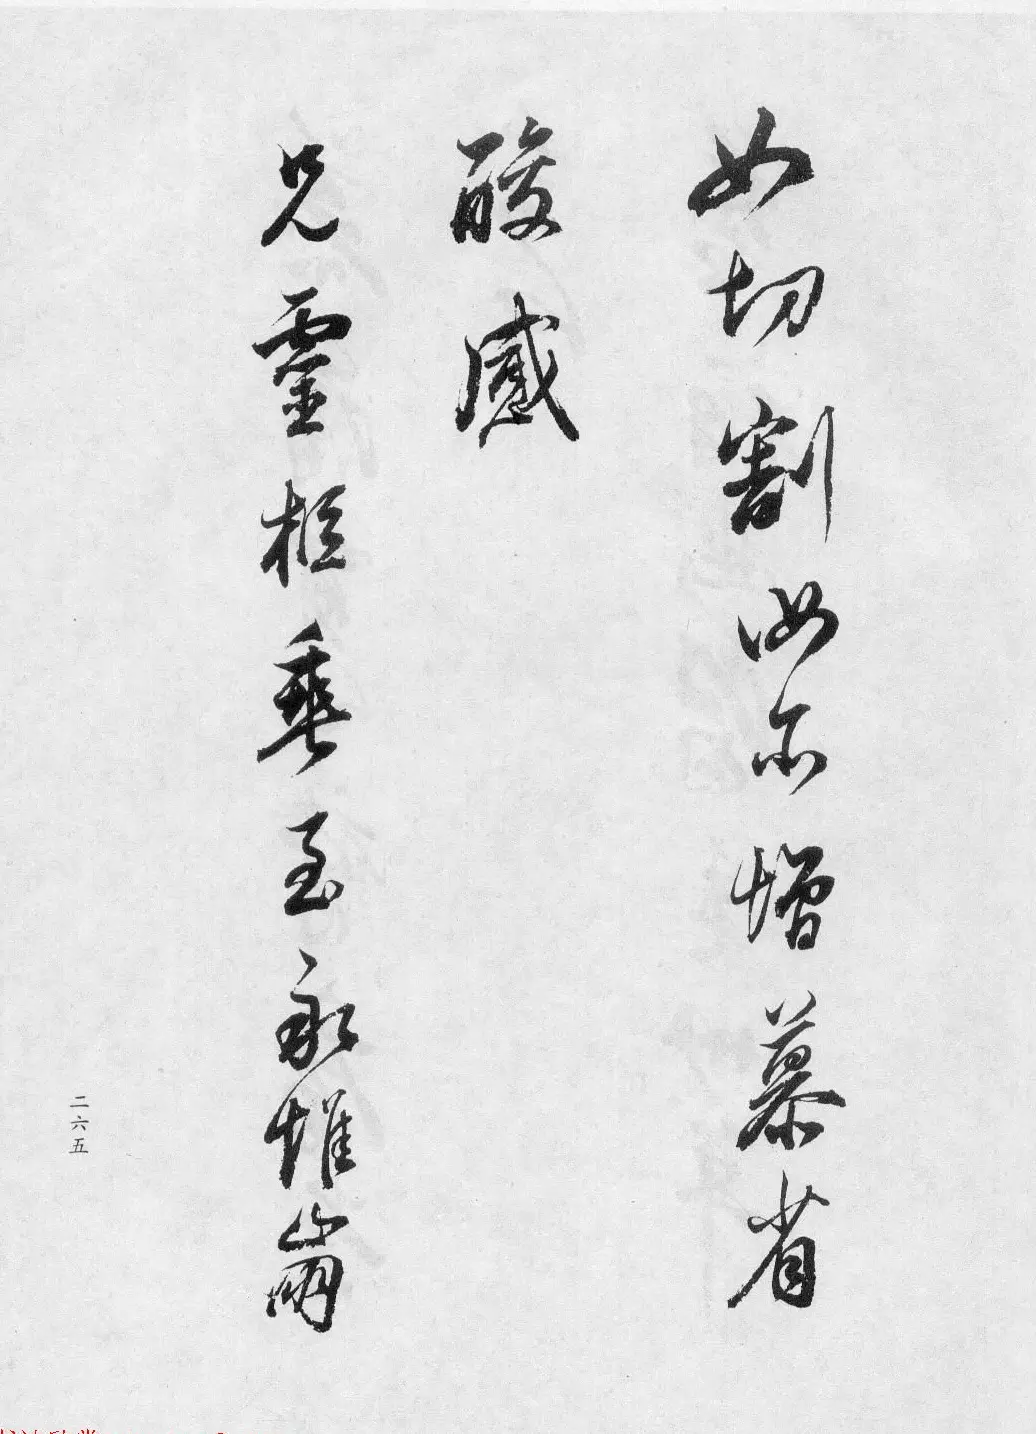 如切割汝亦增慕省
酸感
兄靈柩垂至永惟崩
二六五